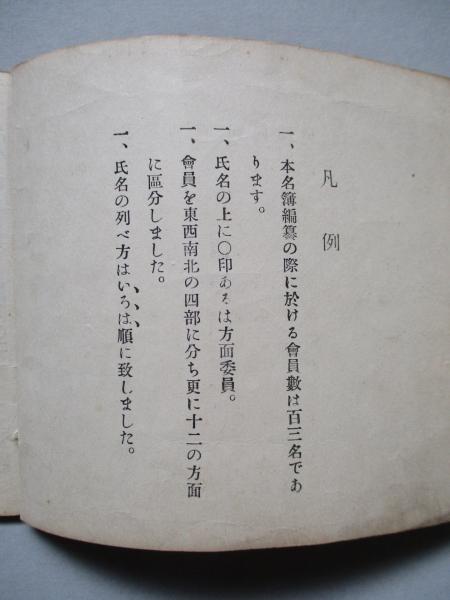 凡例
一、本名簿編纂の際に於ける會員數は百三名であ
ります。
一、氏名の上に〇印あるは方面委員。
一、會員を東西南北の四部に分ち更に十二の方面
に區分しました。
一、氏名の列べ方はいろは順に致しました。